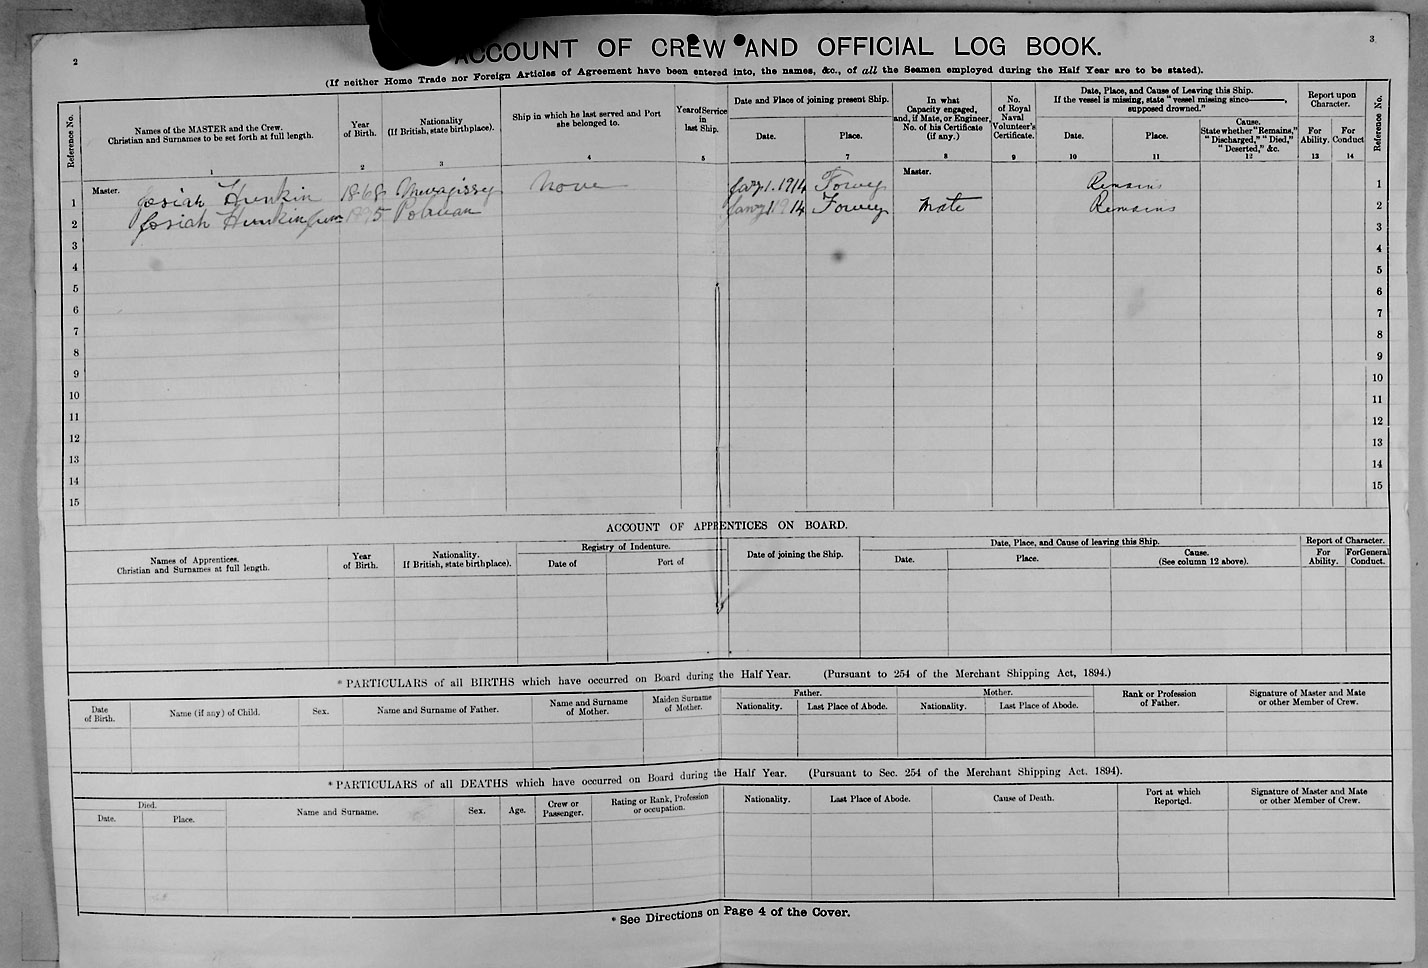 2
3
ACCOUNT OF CREW AND OFFICIAL LOG BOOK.
(If neither Home Trade nor Foreign Articles of Agreement have been entered into, the names, &c., of all the Seamen employed during the Half Year are to be stated).
Reference No.
Names of the MASTER and the Crew,
Christian and Surnames to be set forth at full length.
1
Year
of Birth.
2
Nationality
(If British, state birthplace).
3
Ship in which he last served and Port
she belonged to.
4
Year of Service
in
last Ship.
5
Date and Place of joining present Ship.
Date.
Place.
7
In what
Capacity engaged,
and, if Mate, or Engineer,
No. of his Certificate
(if any.)
8
No.
of Royal
Naval
Volunteer's
Certificate.
9
Date, Place, and Cause of Leaving this Ship.
If the vessel is missing, state "vessel missing since———,
supposed drowned."
Date.
10
Place.
11
Cause.
State whether "Remains,"
"Discharged," "Died,"
"Deserted," &c.
12
Report upon
Character.
For
Ability.
13
For
Conduct
14
Reference No.
1 Master. Josiah Hunkin 1868 Mevagissey None Jany 1. 1914 Fowey Master. Remains 1
2 Josiah Hunkin Jun 1895 Polruan Jany 1 1914 Fowey Mate Remains 2
3 3
4 4
5 5
6 6
7 7
8 8
9 9
10 10
11 11
12 12
13 13
14 14
15 15
ACCOUNT OF APPRENTICES ON BOARD.
Names of Apprentices.
Christian and Surnames at full length.
Year
of Birth.
Nationality.
If British, state birthplace).
Registry of Indenture.
Date of
Port of
Date of joining the Ship.
Date, Place, and Cause of leaving this Ship.
Date.
Place.
Cause.
(See column 12 above).
Report of Character.
For
Ability.
For General
Conduct.
* PARTICULARS of all BIRTHS which have occurred on Board during the Half Year. (Pursuant to 254 of the Merchant Shipping Act, 1894.)
Date
of Birth.
Name (if any) of Child.
Sex.
Name and Surname of Father.
Name and Surname
of Mother.
Maiden Surname
of Mother.
Father.
Nationality.
Last Place of Abode.
Mother.
Nationality.
Last Place of Abode.
Rank or Profession
of Father.
Signature of Master and Mate
or other Member of Crew.
* PARTICULARS of all DEATHS which have occurred on Board during the Half Year. (Pursuant to Sec. 254 of the Merchant Shipping Act. 1894).
Died.
Date.
Place.
Name and Surname.
Sex.
Age.
Crew or
Passenger.
Rating or Rank, Profession
or occupation.
Nationality.
Last Place of Abode.
Cause of Death.
Port at which
Reported.
Signature of Master and Mate
or other Member of Crew.
* See Directions on Page 4 of the Cover.